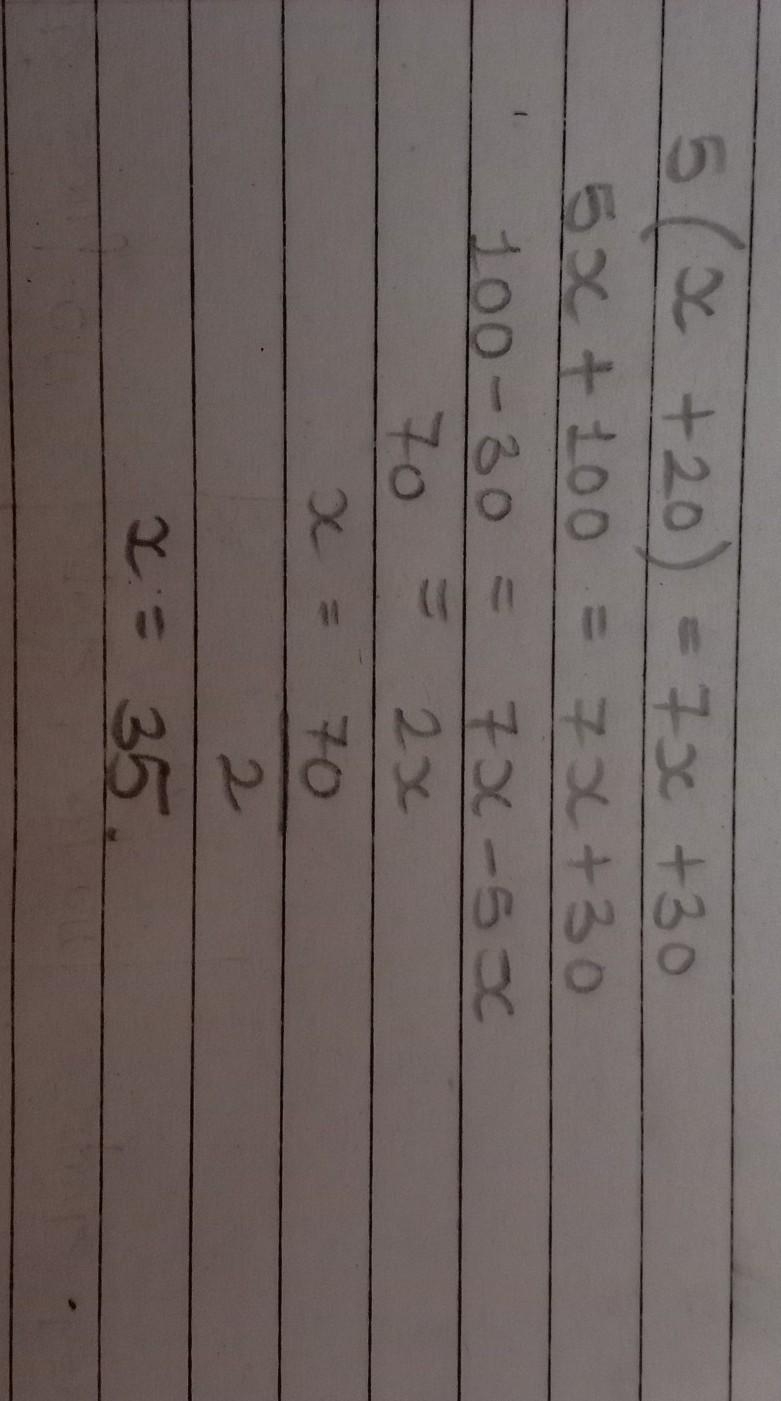 5(x +20) = 7x +30
5x + 100 = 7x + 30
100 - 30 = 7x - 5x
70 = 2x
x = 70
2
x = 35.